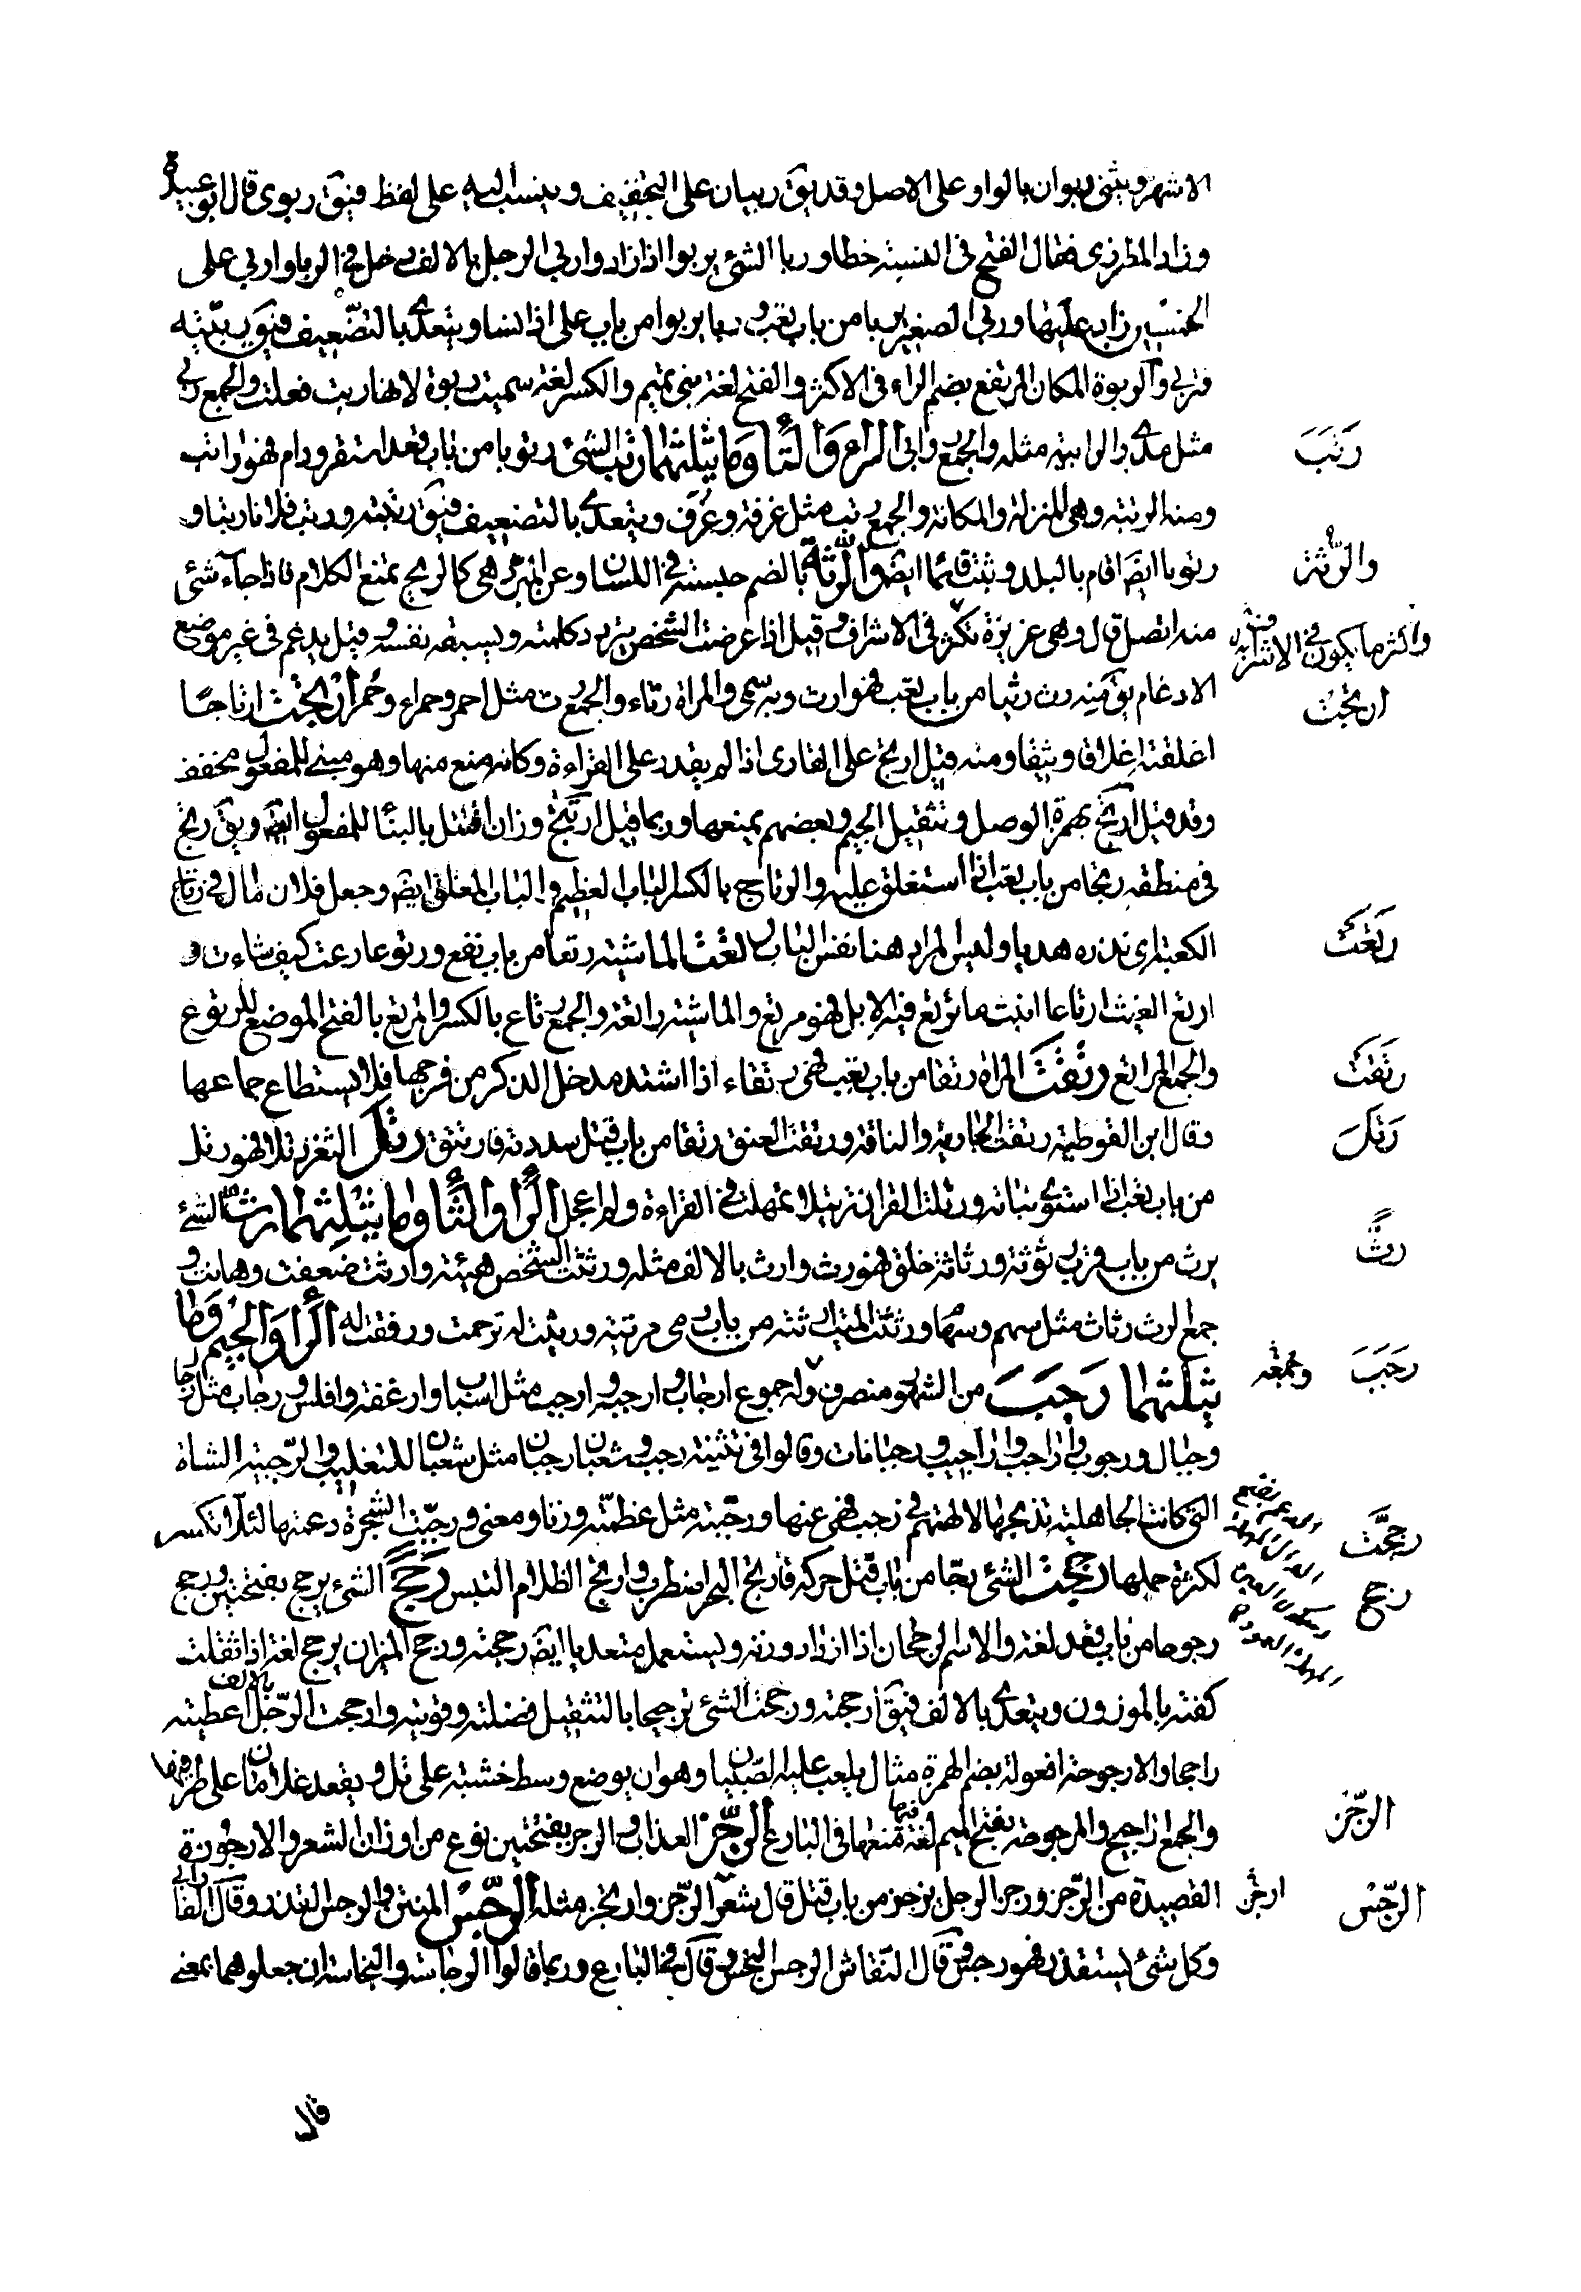 الاشهر ويثنى ربوان بالواو على الاصل وقد يق ربيان على التخفيف وينسب اليه على لفظه فيق ربوى قال ابو عبيدة
وزاد المطرزى فقال الفتح فى النسبة خطا وربا الشئ يربوا اذا زاد واربى الرجل بالالف دخل فى الربا واربى على
الخمسين زاد عليها وربى الصغير يربا من باب تعب وربا يربوا من باب علا اذا نشا ويتعدى بالتضعيف فيق ربيته
فتربى والربوة المكان المرتفع بضم الراء فى الاكثر والفتح لغة بنى تميم والكسر لغة سميت ربوة لانها ربت فعلت والجمع ربى
مثل مدى والرابية مثله والجمع روابى الراء والتا وما يثلثهما رتب الشئ رتوبا من باب قعد استقر ودام فهو راتب
ومنه الرتبة وهى المنزلة والمكانة والجمع رتب مثل غرفة وغرف ويتعدى بالتضعيف فيق رتبته ورتب فلان رتبا و
رتوبا ايض اقام بالبلد وثبت قائما ايض والرتة بالضم حبسة فى اللسان وعن المبرد هى كالريح تمنع الكلام فاذا جاء شئ
منه اتصل قال وهى غريزة تكثر فى الاشراف وقيل اذا عرضت للشخص يتردد كلمته ويسبقه نفسه وقيل يدغم فى غير موضع
الادغام يق منه رت رتتا من باب تعب فهو ارت وبه سمى والمراة رتاء والجمع رت مثل احمر وحمراء وحمر ارتجت ارتاجا
اغلقته اغلاقا وثيقا ومنه قيل ارتج على القارى اذا لم يقدر على القراءة وكانه منع منها وهو مبنى للمفعول مخفف
وقد قيل ارتج بهمزة الوصل وتثقيل الجيم وبعضهم يمنعها وربما قيل ارتتج وزان اقتتل بالبنا للمفعول ايض ويق رتج
فى منطقه رتجا من باب تعب اذا استغلق عليه والرتاج بالكسر الباب العظيم والباب المغلق ايض وجعل فلان ماله فى رتاج
الكعبة اى نذره هديا وليس المراد هنا نفس الباب رتعت الماشية رتعا من باب نفع ورتوعا رعت كيف شاءت و
ارتع الغيث ارتاعا انبت ما ترتع فيه الابل فهو مرتع والماشية راتعة والجمع رتاع بالكسر والمرتع بالفتح الموضع للرتوع
والجمع المراتع رتقت المراة رتقا من باب تعب فهى رتقاء اذا اشتد مدخل الذكر من فرجها فلا يستطاع جماعها
وقال ابن القوطية رتقت الجارية والناقة ورتقت الفتق رتقا من باب قتل سددته فارتتق رتل الثغر رتلا فهو رتل
من باب تعب اذا استوى نباته ورتلت القران ترتيلا تمهلت فى القراءة ولم اعجل الرا والثا وما يثلثهما رث الشئ
يرث من باب قرب رثوثة ورثاثة خلق فهو رث وارث بالالف مثله ورثت الشخص هيئته وارثت ضعفت وهانت و
جمع الرث رثاث مثل سهم وسهام ورثيت الميت ارثيه من باب رمى مرثية ورثيت له ترحمت ورققت له الرا والجيم وما
يثلثهما رجب من الشهور منصرف وله جموع ارجاب وارجبة وارجب مثل اسباب وارغفة وافلس ورجاب مثل رجال
وجبال ورجوب واراجب واراجيب ورجبانات وقالوا فى تثنية رجب وشعبان رجبان مثل شعبان للتغليب والرجبية الشاة
التى كانت الجاهلية تذبحها لالهتهم فى رجب فهى عنها ورجبته مثل عظمته وزنا ومعنى ورجبت الشجرة دعمتها لئلا تنكسر
لكثرة حملها رججت الشئ رجا من باب قتل حركته فارتج البحر اضطرب وارتج الظلام التبس رجح الشئ يرجح بفتحتين ورجح
رجوحا من باب قعد لغة والاسم الرجحان اذا زاد وزنه ويستعمل متعديا ايض رجحته ورجح الميزان يرجح لغة اذا ثقلت
كفته بالموزون ويتعدى بالالف فيق ارجحته ورجحت الشئ ترجيحا بالتثقيل فضلته وقويته وارجحت الرجل بالالف اعطيته
راجحا والارجوحة افعولة بضم الهمزة مثال يلعب عليه الصبيان وهو ان يوضع وسط خشبة على تل ويقعد غلامان على طرفيها
والجمع اراجيح والمرجوحة بفتح الميم لغة فيها منعها فى البارع الرجز العذاب والرجز بفتحتين نوع من اوزان الشعر والارجوزة
القصيدة من الرجز ورجز الرجل يرجز من باب قتل قال شعر الرجز وارتجز مثله الرجس المنتن والرجس القذر وقال الفارابى
وكل شئ يستقذر فهو رجس وقال النقاش الرجس النجس وقال فى البارع وربما قالوا الرجاسة والنجاسة اى جعلوهما بمعنى
رتب
والرتة
واكثر ما يكون فى الاشراف
ارتجت
رتعت
رتقت
رتل
رث
رجب
وجمعه
رججت
رجح
الرجز
ارتجز
الرجس
قال